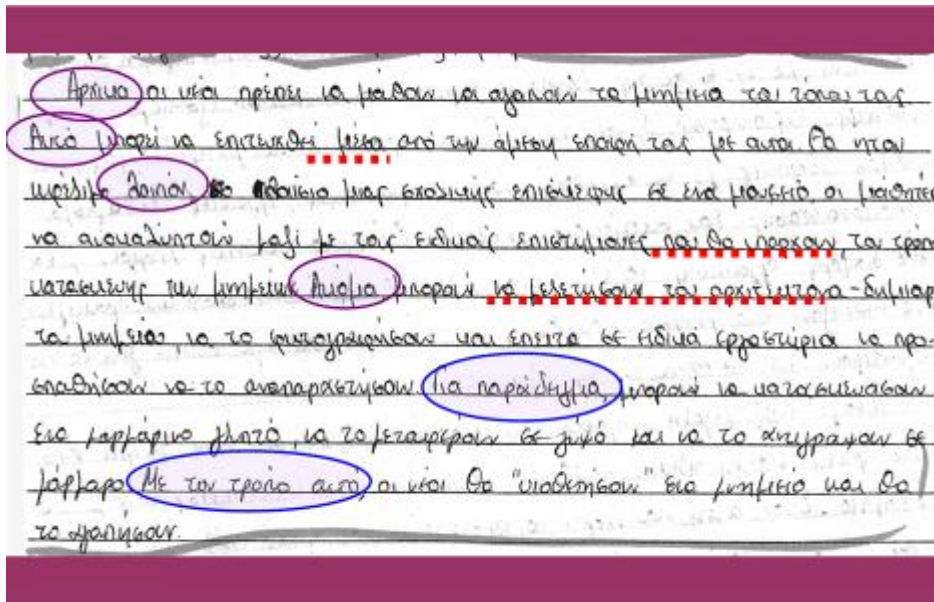 Αρχικά οι νέοι πρέπει να μάθουν να αγαπούν τα μνημεία του τόπου τους.
Αυτό μπορεί να επιτευχθεί μέσα από την άμεση επαφή τους με αυτα. Θα ηταν
ωφέλιμο λοιπόν πλαίσιο μιας σχολικής επισκέψης σε ένα μουσείο, οι μαθητές
να ανακαλυπτουν μαζί με τους ειδικούς επιστήμονες που θα υπαρχουν, τον τρόπο
κατασκευής των μνημείων. Ακόμα μπορούν να μελετήσουν τον αρχιτέκτονα-δημιουρ
του μνημείου, να το φωτογραφήσουν και έπειτα σε ειδικά εργαστήρια να προ-
σπαθήσουν να το αναπαραστήσουν. Για παράδειγμα, μπορουν να κατασκευασουν
ένα μαρμάρινο γλυπτό, να το μεταφέρουν σε γυψο και να το αντιγράψουν σε
μάρμαρο. Με τον τρόπο αυτό, οι νέοι θα "υιοθετήσουν" ένα μνημείο και θα
το αγαπήσουν.